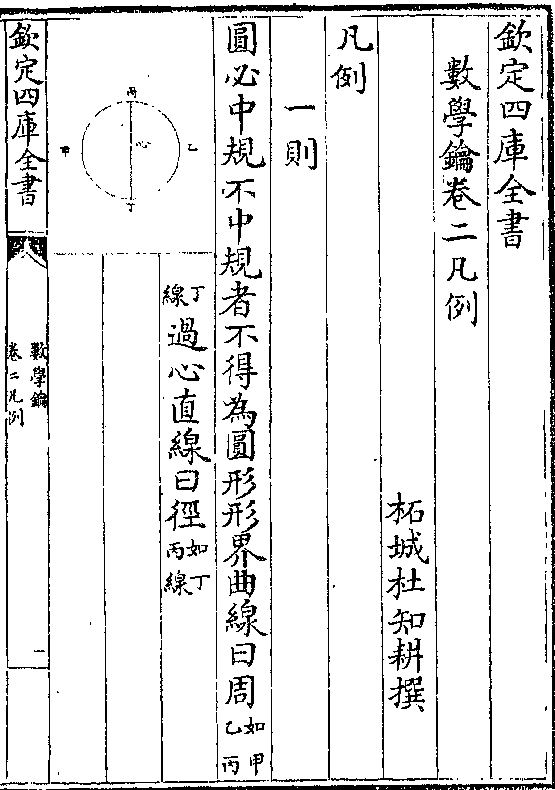 欽定四庫全書
數學鑰卷二凡例
柘城杜知耕撰
凡例
一則
圓必中規不中規者不得為圓形形界曲線曰周如甲乙丙
丁線過心直線曰徑如丁丙線
丙
乙
心
甲
丁
欽定四庫全書
數學鑰
卷二凡例
一